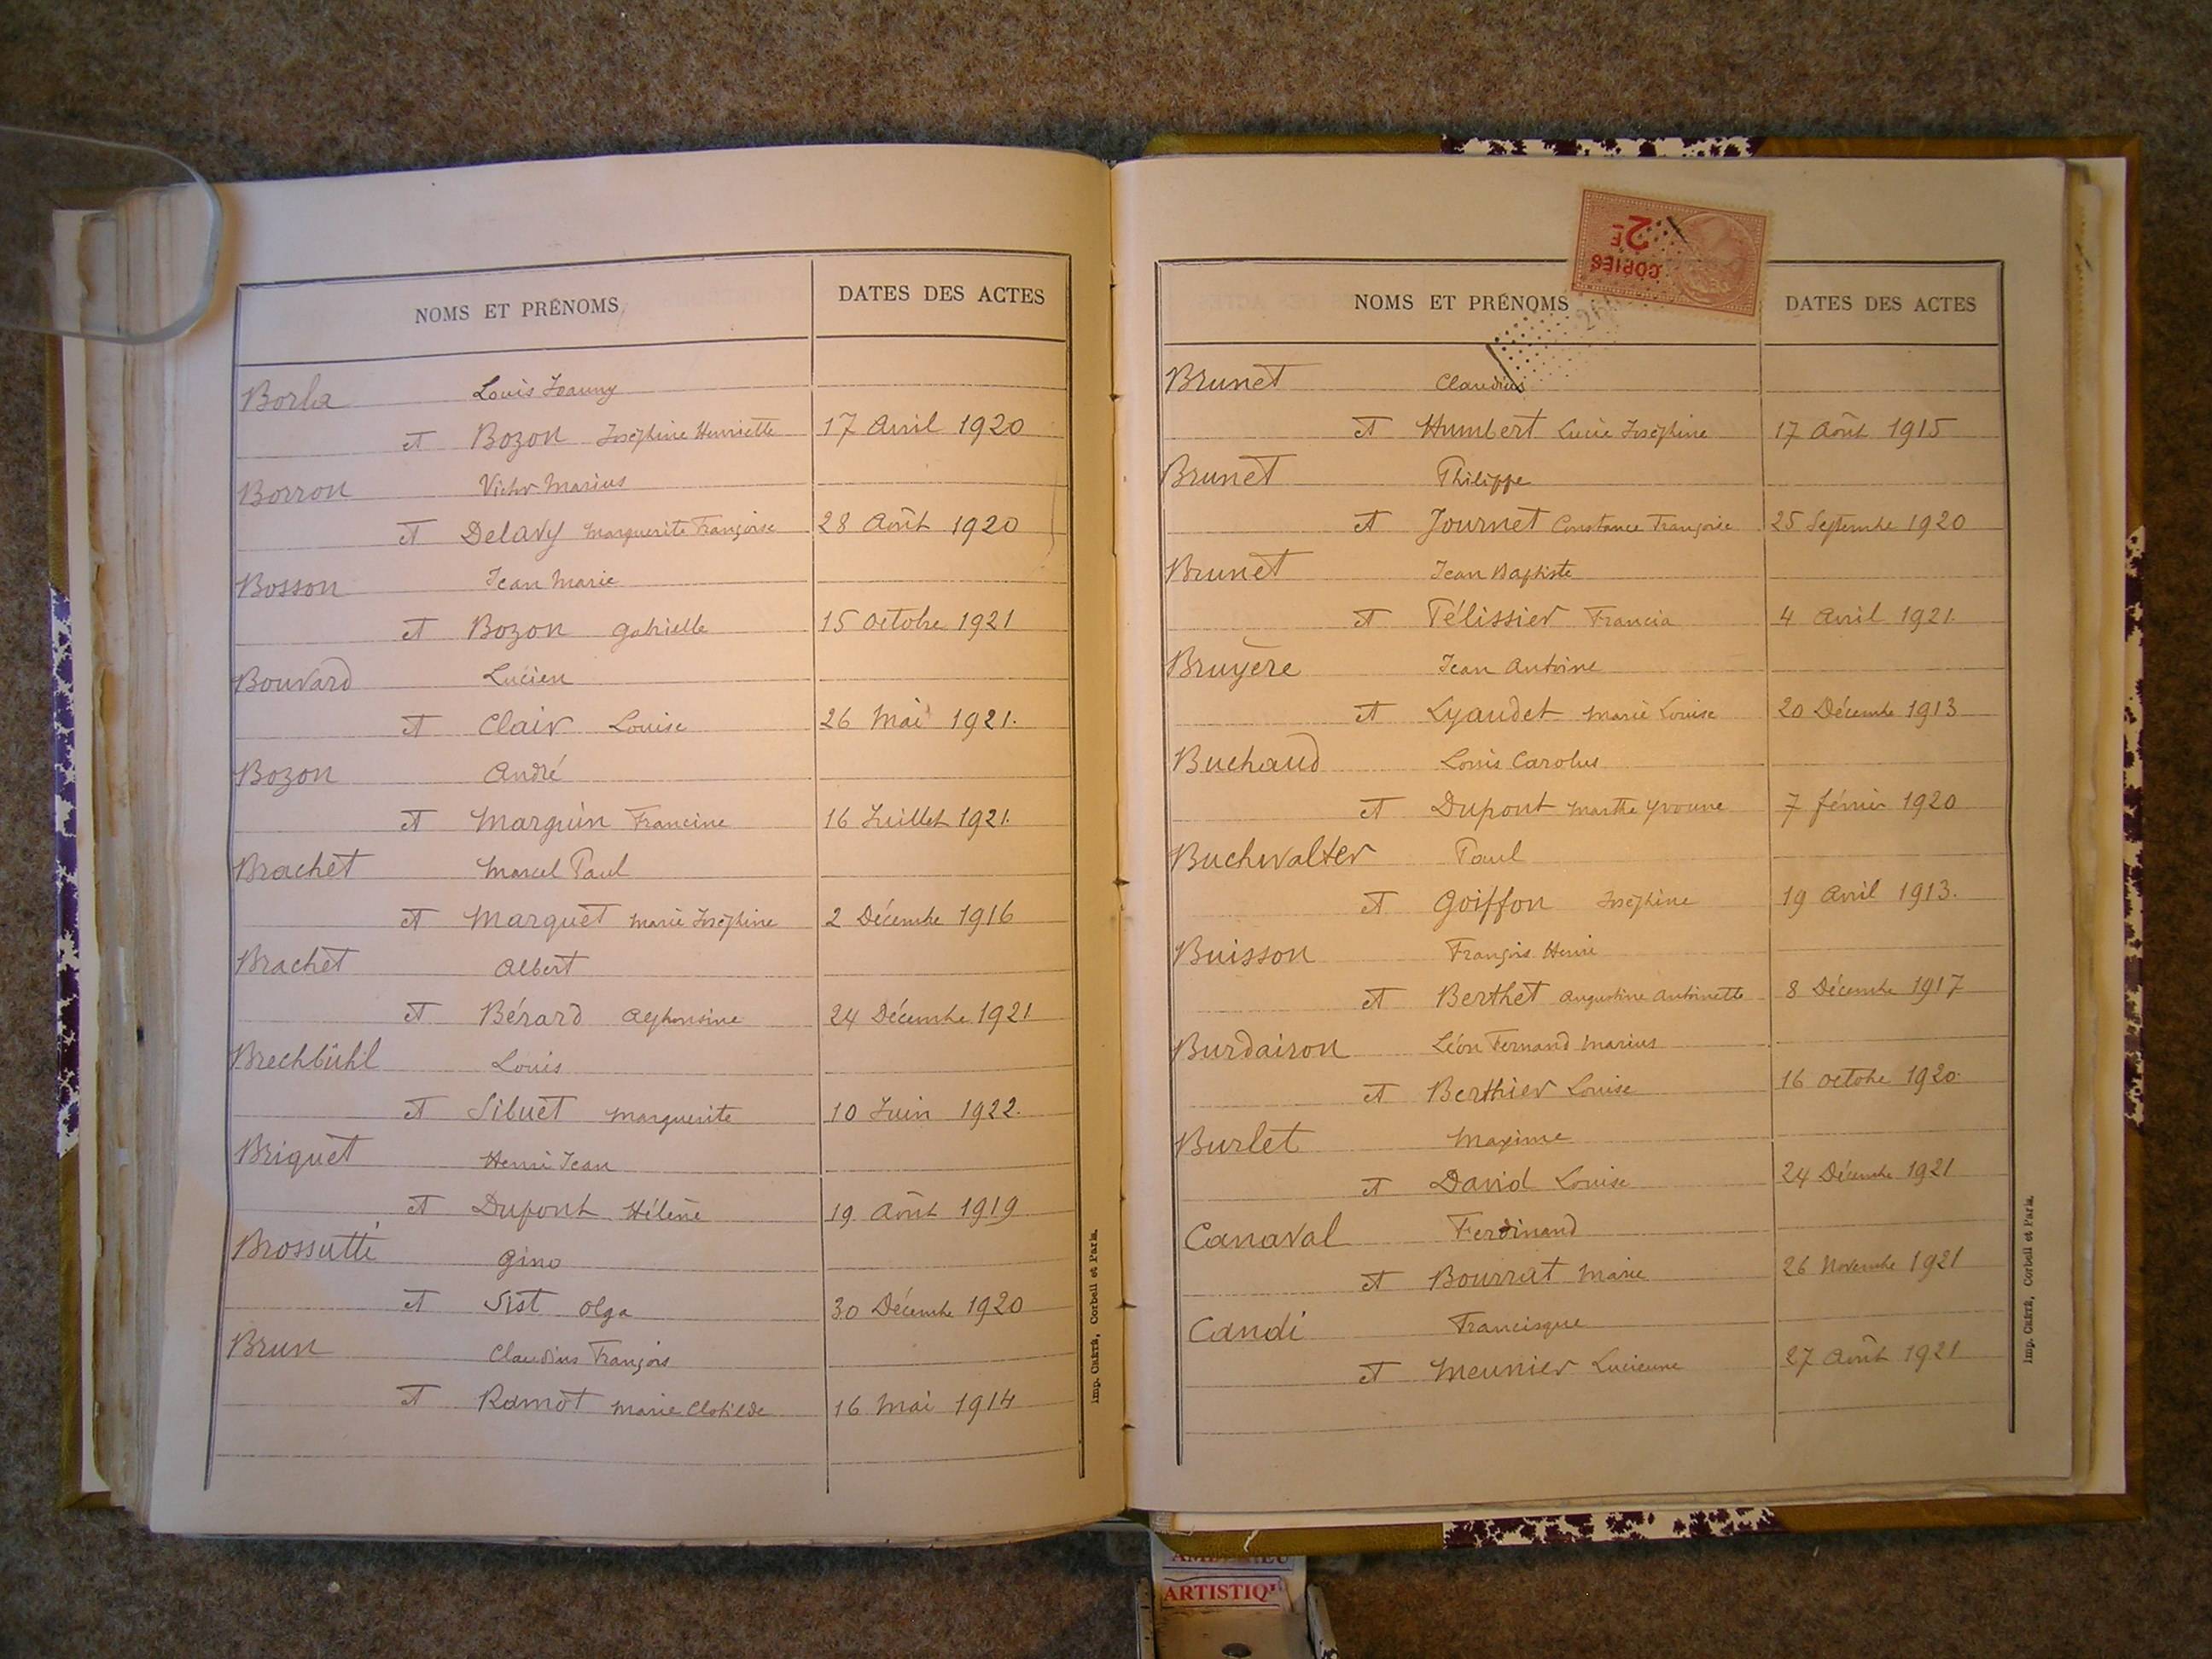 NOMS ET PRÉNOMS
DATES DES ACTES
Borla Louis Joanny
et Bozon Joséphine Henriette 17 Avril 1920
Borron Victor Marius
et Delavy Marguerite Françoise 28 Août 1920
Bosson Jean Marie
et Bozon Gabrielle 15 Octobre 1921
Bouvard Lucien
et Clair Louise 26 Mai 1921.
Bozon André
et Marguin Francine 16 Juillet 1921.
Brachet Marcel Paul
et Marquet Marie Joséphine 2 Décembre 1916
Brachet Albert
et Bérard Alphonsine 24 Décembre 1921
Brechbühl Louis
et Sibuet Marguerite 10 Juin 1922.
Briquet Henri Jean
et Dupont Hélène 19 Août 1919
Brossutti Gino
et Sist Olga 30 Décembre 1920
Brun Claudius François
et Ramot Marie Clotilde 16 Mai 1914
Imp. CRÉTÉ, Corbeil et Paris.
2F
COPIES
NOMS ET PRÉNOMS
DATES DES ACTES
Brunet Claudius
et Humbert Lucie Joséphine 17 Août 1915
Brunet Philippe
et Journet Constance Françoise 25 Septembre 1920
Brunet Jean Baptiste
et Pélissier Francia 4 Avril 1921.
Bruyère Jean Antoine
et Lyaudet Marie Louise 20 Décembre 1913
Buchaud Louis Carolus
et Dupont Marthe Yvonne 7 février 1920
Buchwalter Paul
et Goiffon Joséphine 19 Avril 1913.
Buisson François Henri
et Berthet Augustine Antoinette 8 Décembre 1917
Burdairon Léon Fernand Marius
et Berthier Louise 16 Octobre 1920.
Burlet Maxime
et David Louise 24 Décembre 1921
Canaval Ferdinand
et Bourrat Marie 26 Novembre 1921
Candi Francisque
et Meunier Lucienne 27 Août 1921
Imp. CRÉTÉ, Corbeil et Paris.
ARTISTIQ